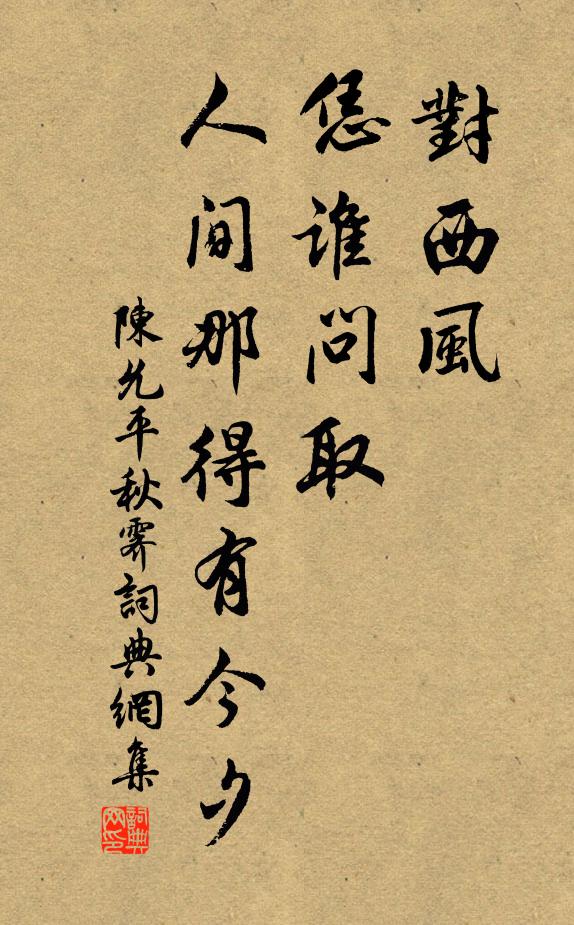 對西風
恁誰問取
人間那得有今夕
陳允平秋霽詞典網集
詞典网印